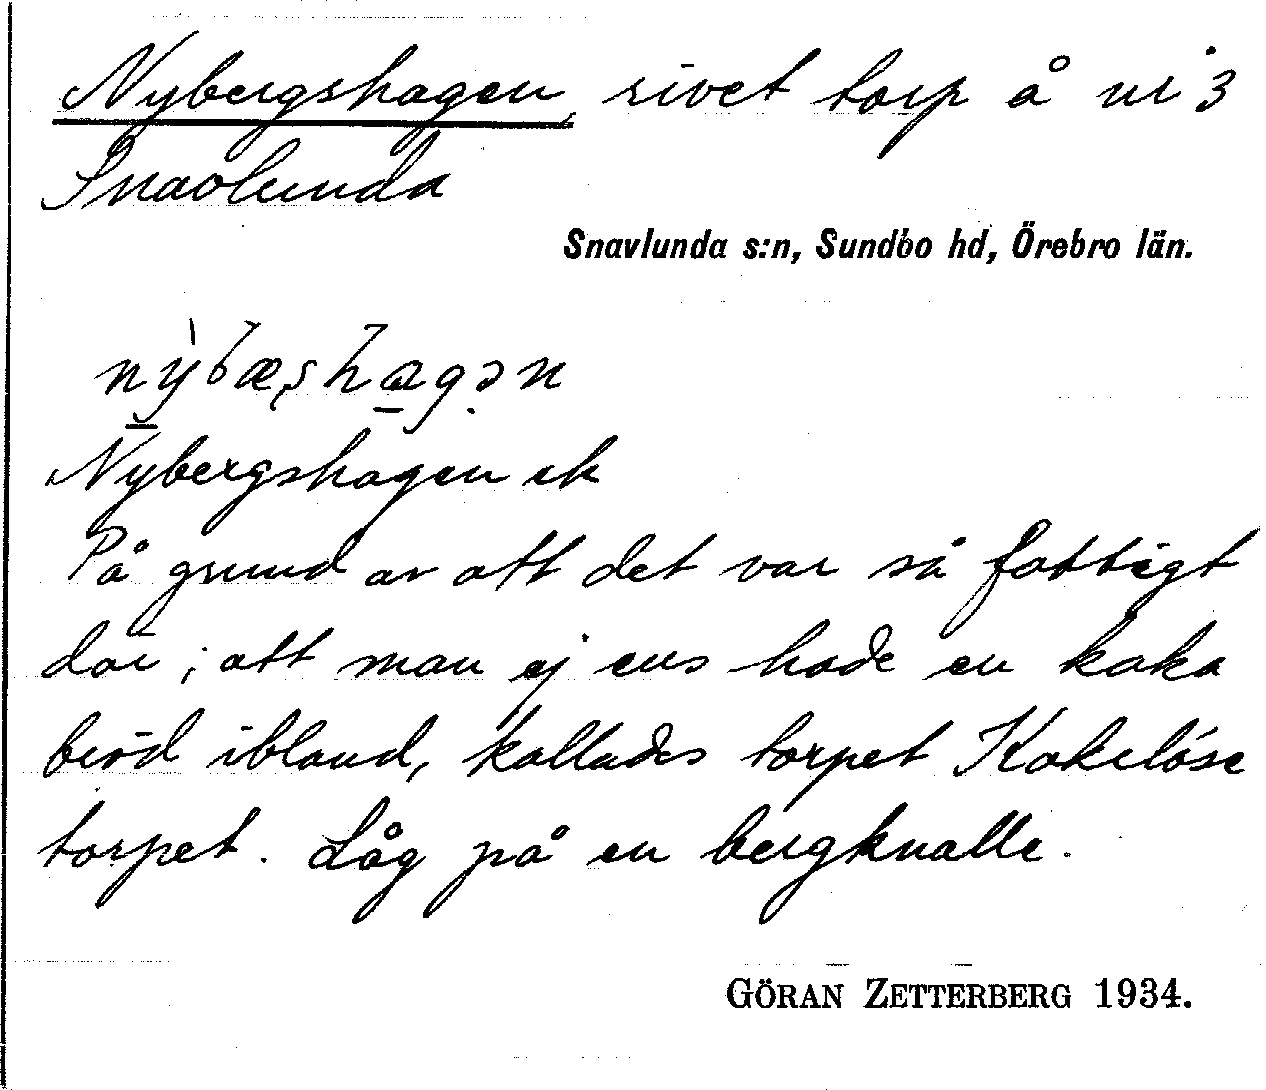 Nybergshagen rivet torp å nr 3
Snavlunda
Snavlunda s:n, Sundbo hd, Örebro län.
nỳbæʂhagən
Nybergshagen ek
På grund av att det var så fattigt
där, att man ej ens hade en kaka
bröd ibland, kallades torpet Kakelöse
torpet. Låg på en bergknalle.
GÖRAN ZETTERBERG 1934.